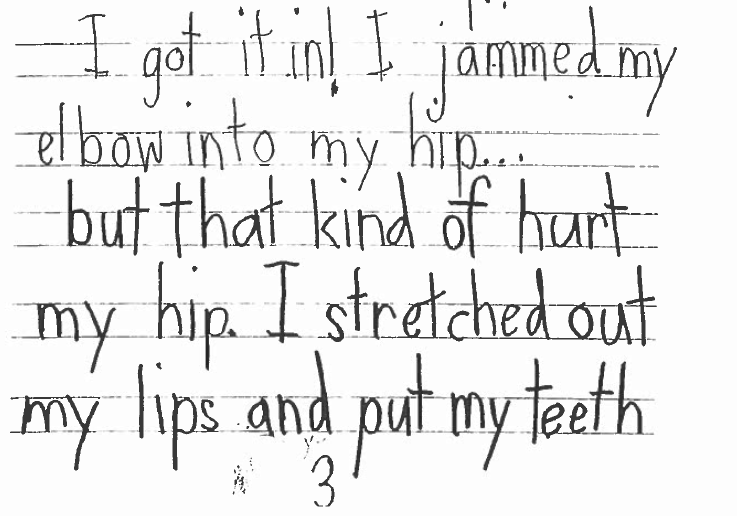 I got it in! I jammed my
elbow into my hip...
but that kind of hurt
my hip. I stretched out
my lips and put my teeth
3